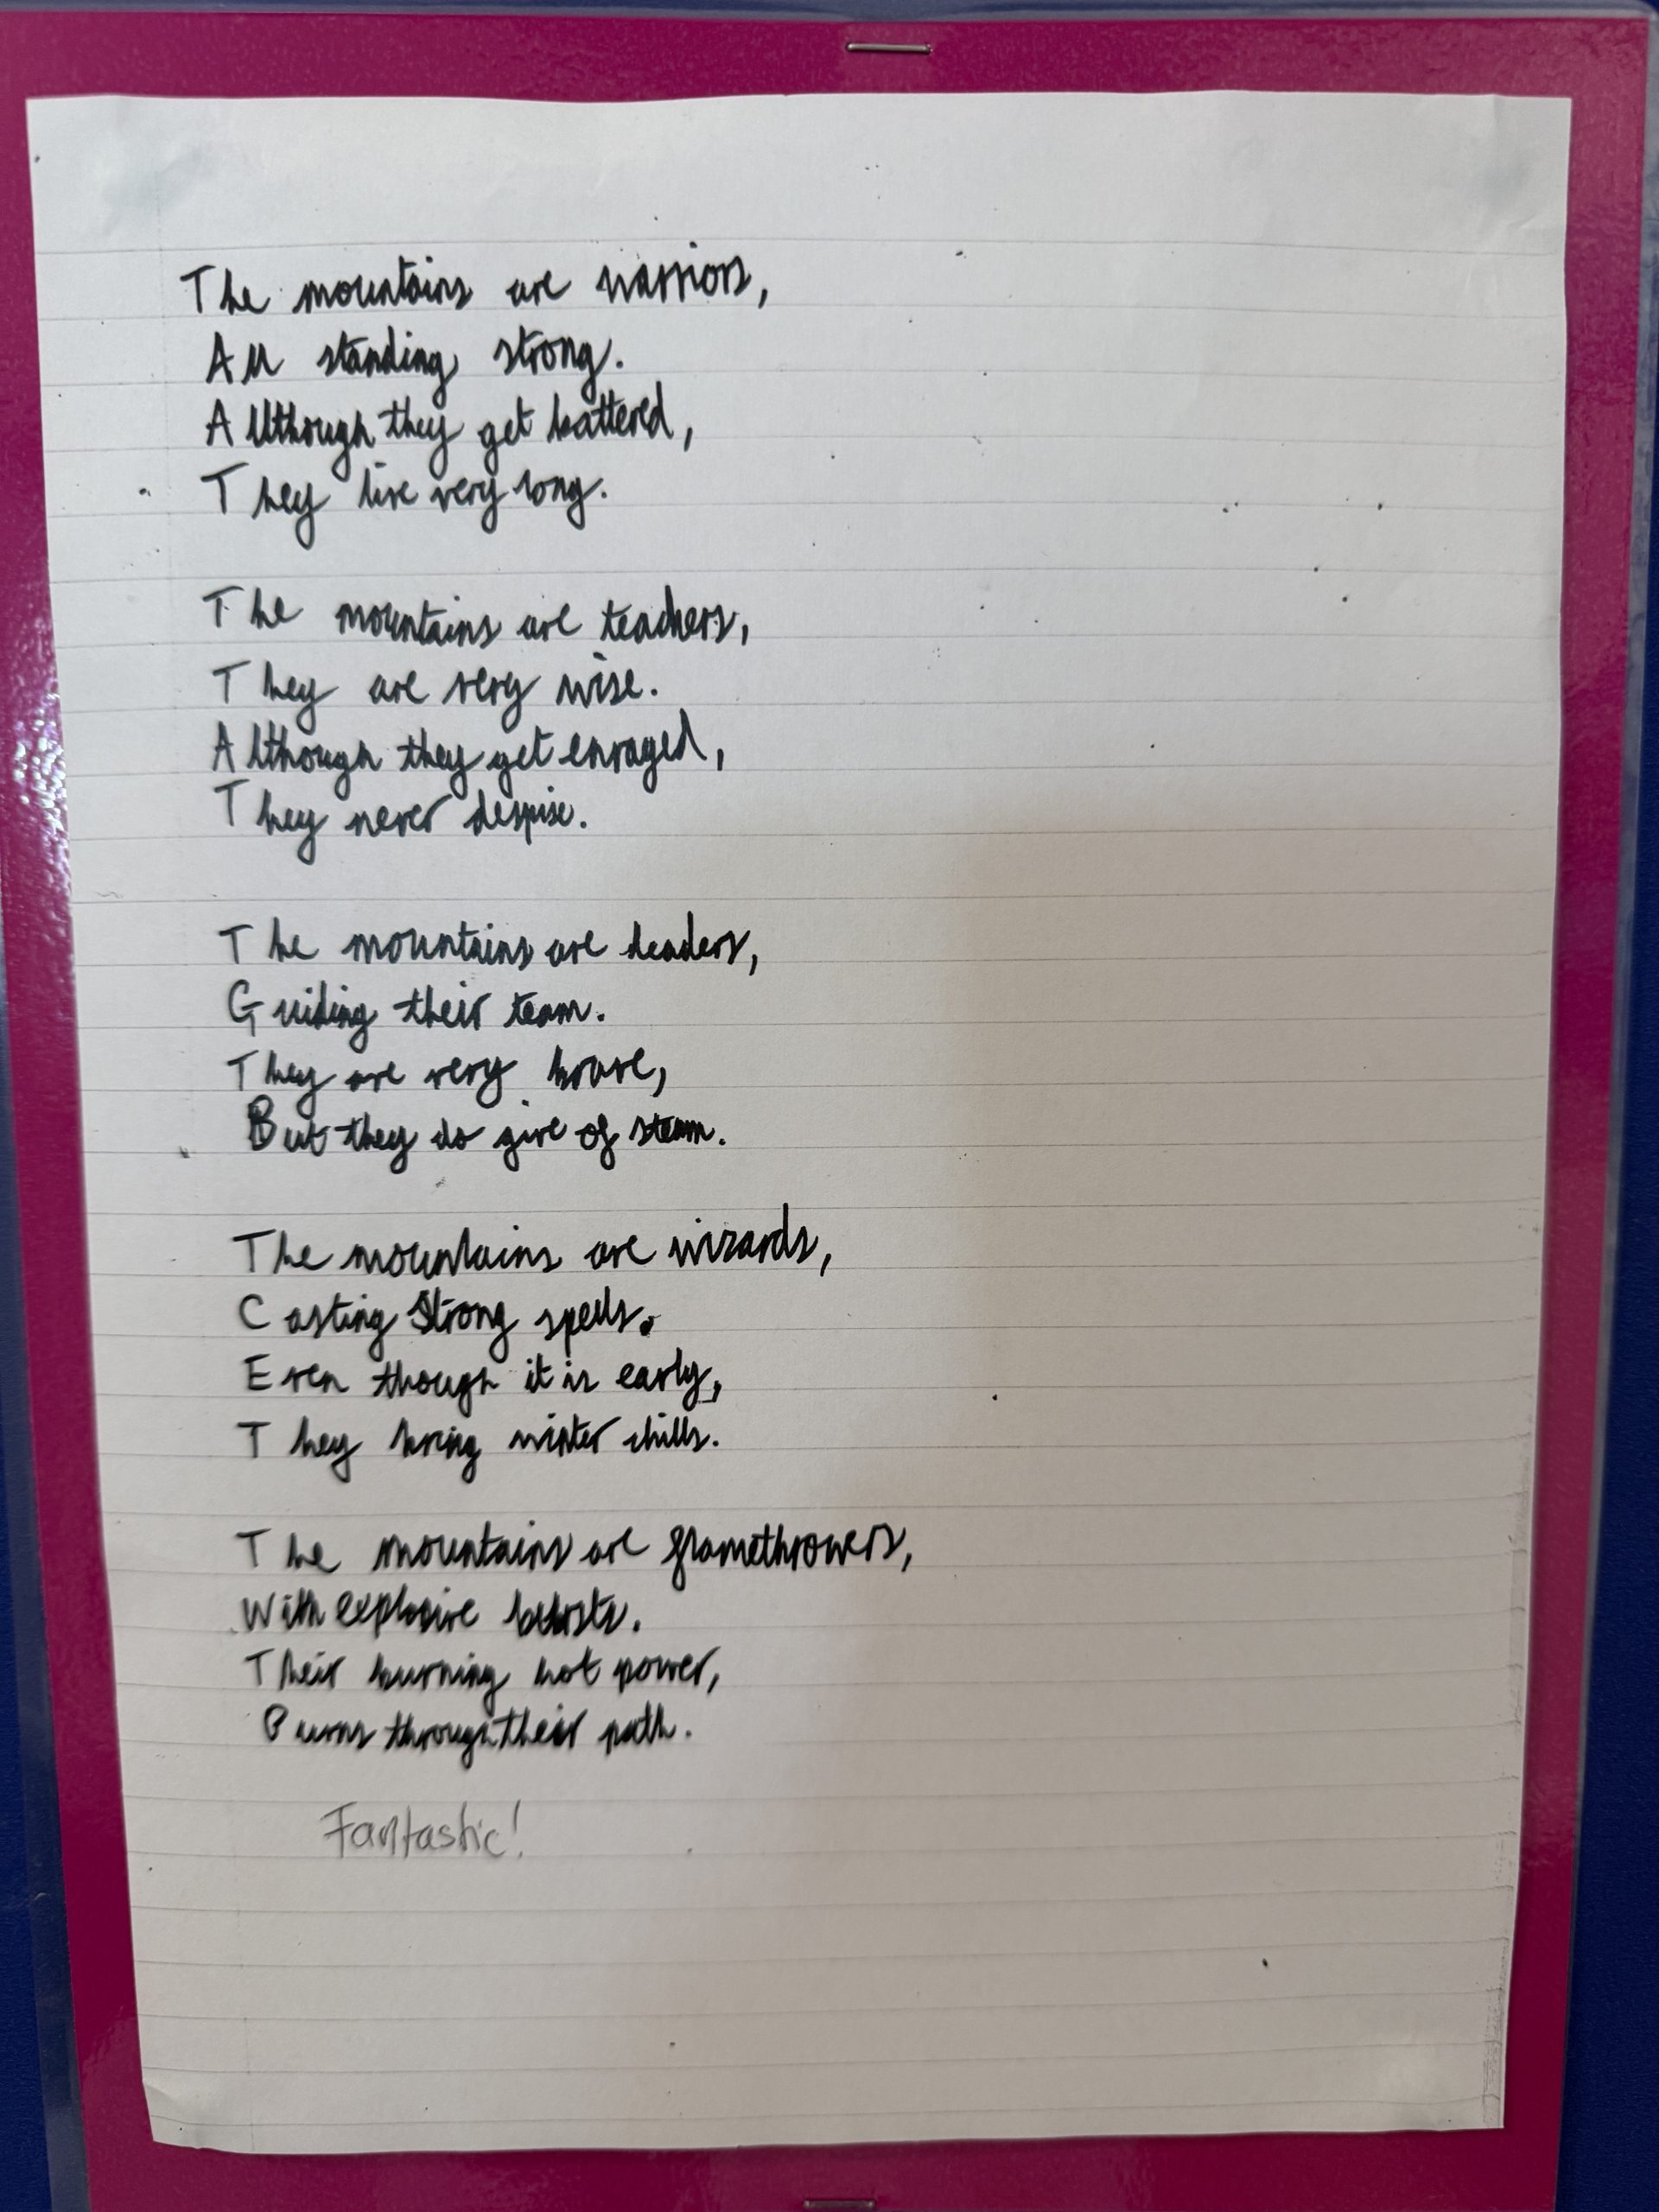 The mountains are warriors,
All standing strong.
Allthough they get battered,
They live very long.
The mountains are teachers,
They are very wise.
Although they get enraged,
They never despise.
The mountains are leaders,
Guiding their team.
They are very brave,
But they do give of steam.
The mountains are wizards,
Casting Strong spells.
Even though it is early,
They bring winter chills.
The mountains are flamethrowers,
With explosive
Their burning hot power,
Burns through their path.
Fantastic!